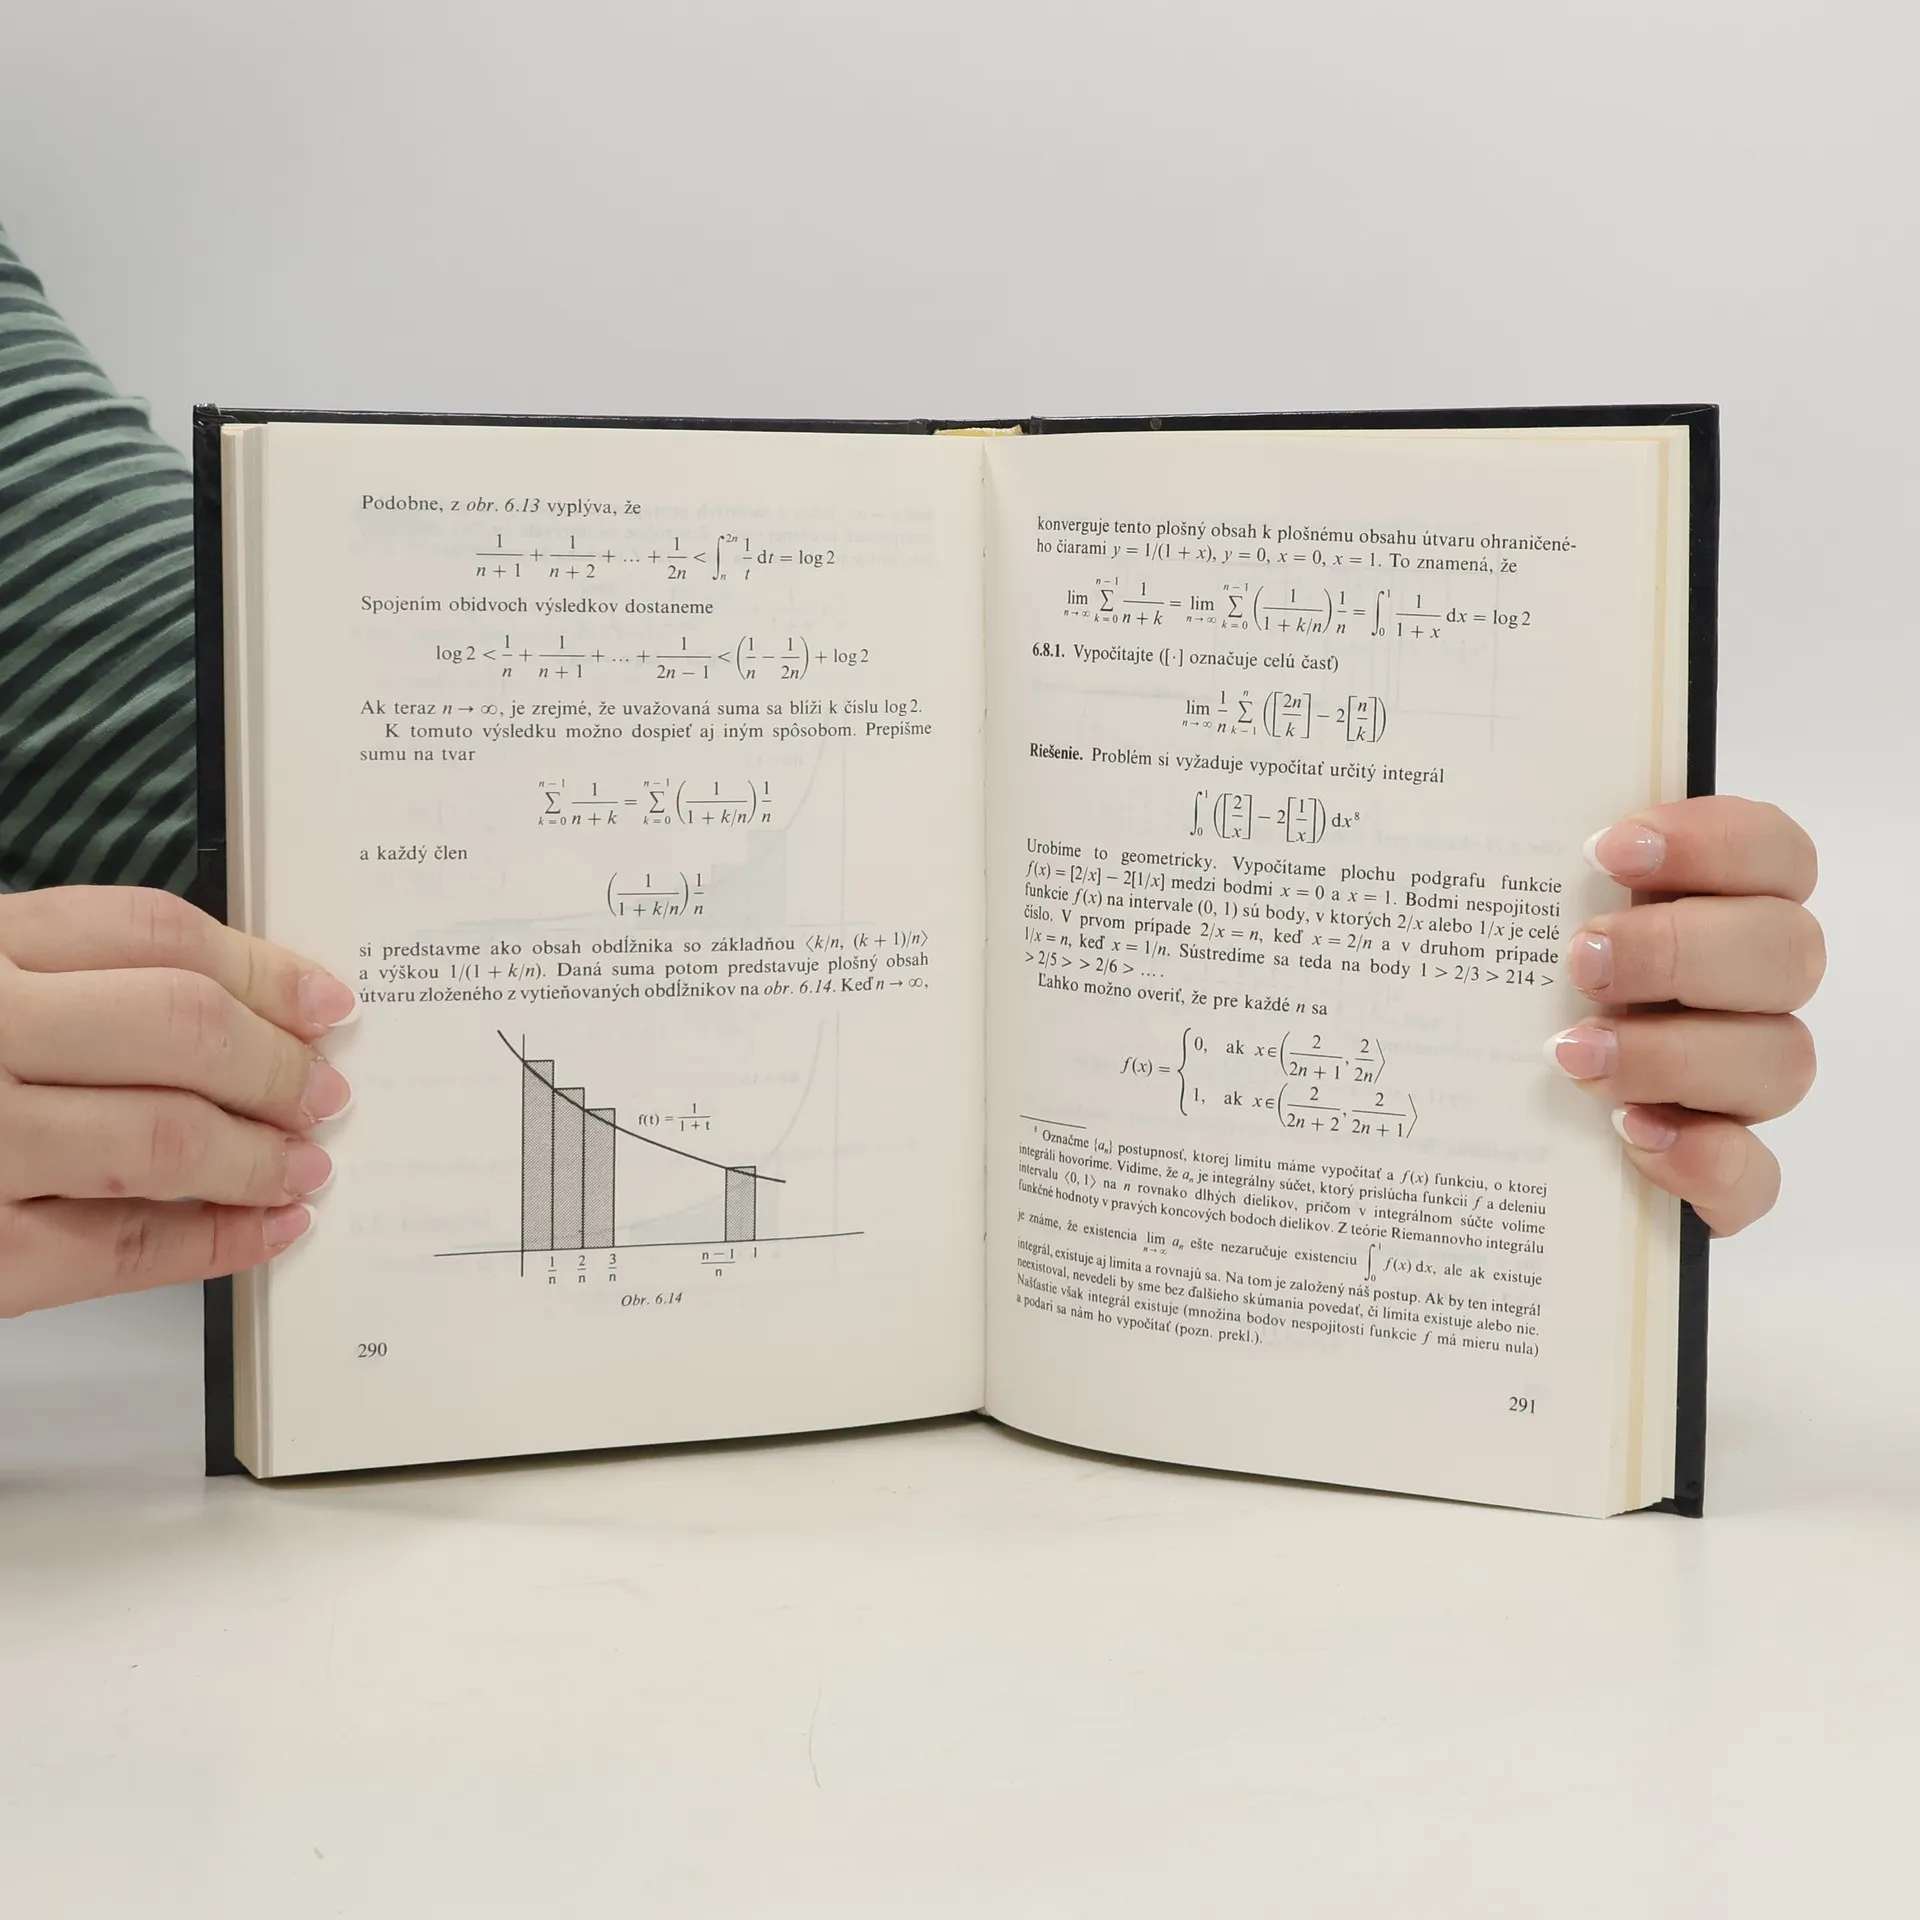 Podobne, z obr. 6.13 vyplýva, že
1/(n + 1) + 1/(n + 2) + ... + 1/2n < ∫_n^{2n} 1/t dt = log 2
Spojením obidvoch výsledkov dostaneme
log 2 < 1/n + 1/(n + 1) + ... + 1/(2n − 1) < (1/n − 1/2n) + log 2
Ak teraz n → ∞, je zrejmé, že uvažovaná suma sa blíži k číslu log 2.
K tomuto výsledku možno dospieť aj iným spôsobom. Prepíšme
sumu na tvar
∑_{k=0}^{n−1} 1/(n + k) = ∑_{k=0}^{n−1} (1/(1 + k/n)) 1/n
a každý člen
(1/(1 + k/n)) 1/n
si predstavme ako obsah obdĺžnika so základňou ⟨k/n, (k + 1)/n⟩
a výškou 1/(1 + k/n). Daná suma potom predstavuje plošný obsah
útvaru zloženého z vytieňovaných obdĺžnikov na obr. 6.14. Keď n → ∞,
f(t) = 1/(1 + t)
1/n 2/n 3/n (n−1)/n 1
Obr. 6.14
290
konverguje tento plošný obsah k plošnému obsahu útvaru ohraničené-
ho čiarami y = 1/(1 + x), y = 0, x = 0, x = 1. To znamená, že
lim_{n→∞} ∑_{k=0}^{n−1} 1/(n + k) = lim_{n→∞} ∑_{k=0}^{n−1} (1/(1 + k/n)) 1/n = ∫_0^1 1/(1 + x) dx = log 2
6.8.1. Vypočítajte ([·] označuje celú časť)
lim_{n→∞} 1/n ∑_{k−1}^n ([2n/k] − 2[n/k])
Riešenie. Problém si vyžaduje vypočítať určitý integrál
∫_0^1 ([2/x] − 2[1/x]) dx⁸
Urobíme to geometricky. Vypočítame plochu podgrafu funkcie
f(x) = [2/x] − 2[1/x] medzi bodmi x = 0 a x = 1. Bodmi nespojitosti
funkcie f(x) na intervale (0, 1) sú body, v ktorých 2/x alebo 1/x je celé
číslo. V prvom prípade 2/x = n, keď x = 2/n a v druhom prípade
1/x = n, keď x = 1/n. Sústredíme sa teda na body 1 > 2/3 > 214 >
> 2/5 > > 2/6 > ....
Ľahko možno overiť, že pre každé n sa
f(x) = { 0, ak x∈(2/(2n + 1), 2/2n⟩
1, ak x∈(2/(2n + 2), 2/(2n + 1)⟩
⁸ Označme {aₙ} postupnosť, ktorej limitu máme vypočítať a f(x) funkciu, o ktorej
integráli hovoríme. Vidíme, že aₙ je integrálny súčet, ktorý prislúcha funkcii f a deleniu
intervalu ⟨0, 1⟩ na n rovnako dlhých dielikov, pričom v integrálnom súčte volíme
funkčné hodnoty v pravých koncových bodoch dielikov. Z teórie Riemannovho integrálu
je známe, že existencia lim_{n→∞} aₙ ešte nezaručuje existenciu ∫_0^1 f(x) dx, ale ak existuje
integrál, existuje aj limita a rovnajú sa. Na tom je založený náš postup. Ak by ten integrál
neexistoval, nevedeli by sme bez ďalšieho skúmania povedať, či limita existuje alebo nie.
Našťastie však integrál existuje (množina bodov nespojitosti funkcie f má mieru nula)
a podarí sa nám ho vypočítať (pozn. prekl.).
291